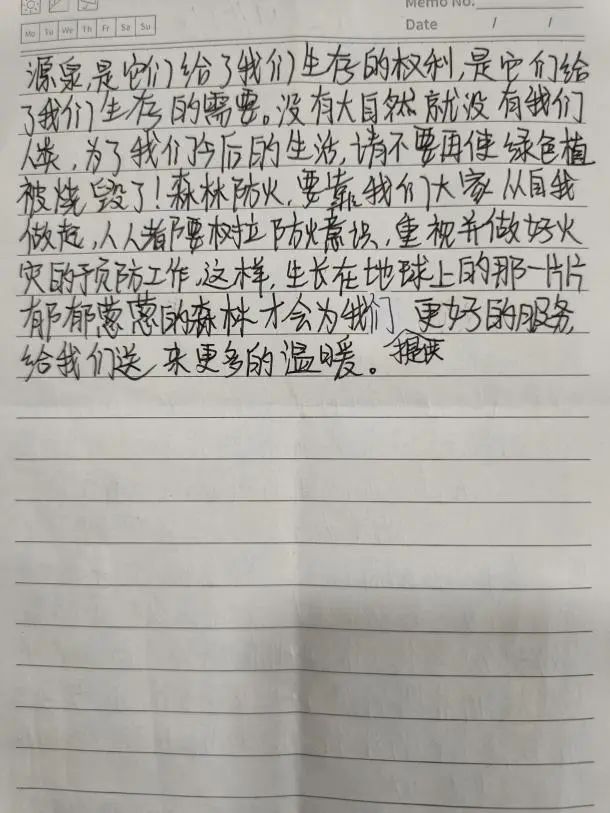 Memo No.
Mo Tu We Th Fr Sa Su
Date / /
源泉,是它们给了我们生存的权利,是它们给
了我们生存的需要。没有大自然就没有我们
人类,为了我们今后的生活,请不要再使绿色植
被烧毁了!森林防火,要靠我们大家从自我
做起,人人都要树立防火意识,重视并做好火
灾的预防工作,这样,生长在地球上的那一片片
郁郁葱葱的森林才会为我们提供更好的服务,
给我们送来更多的温暖。